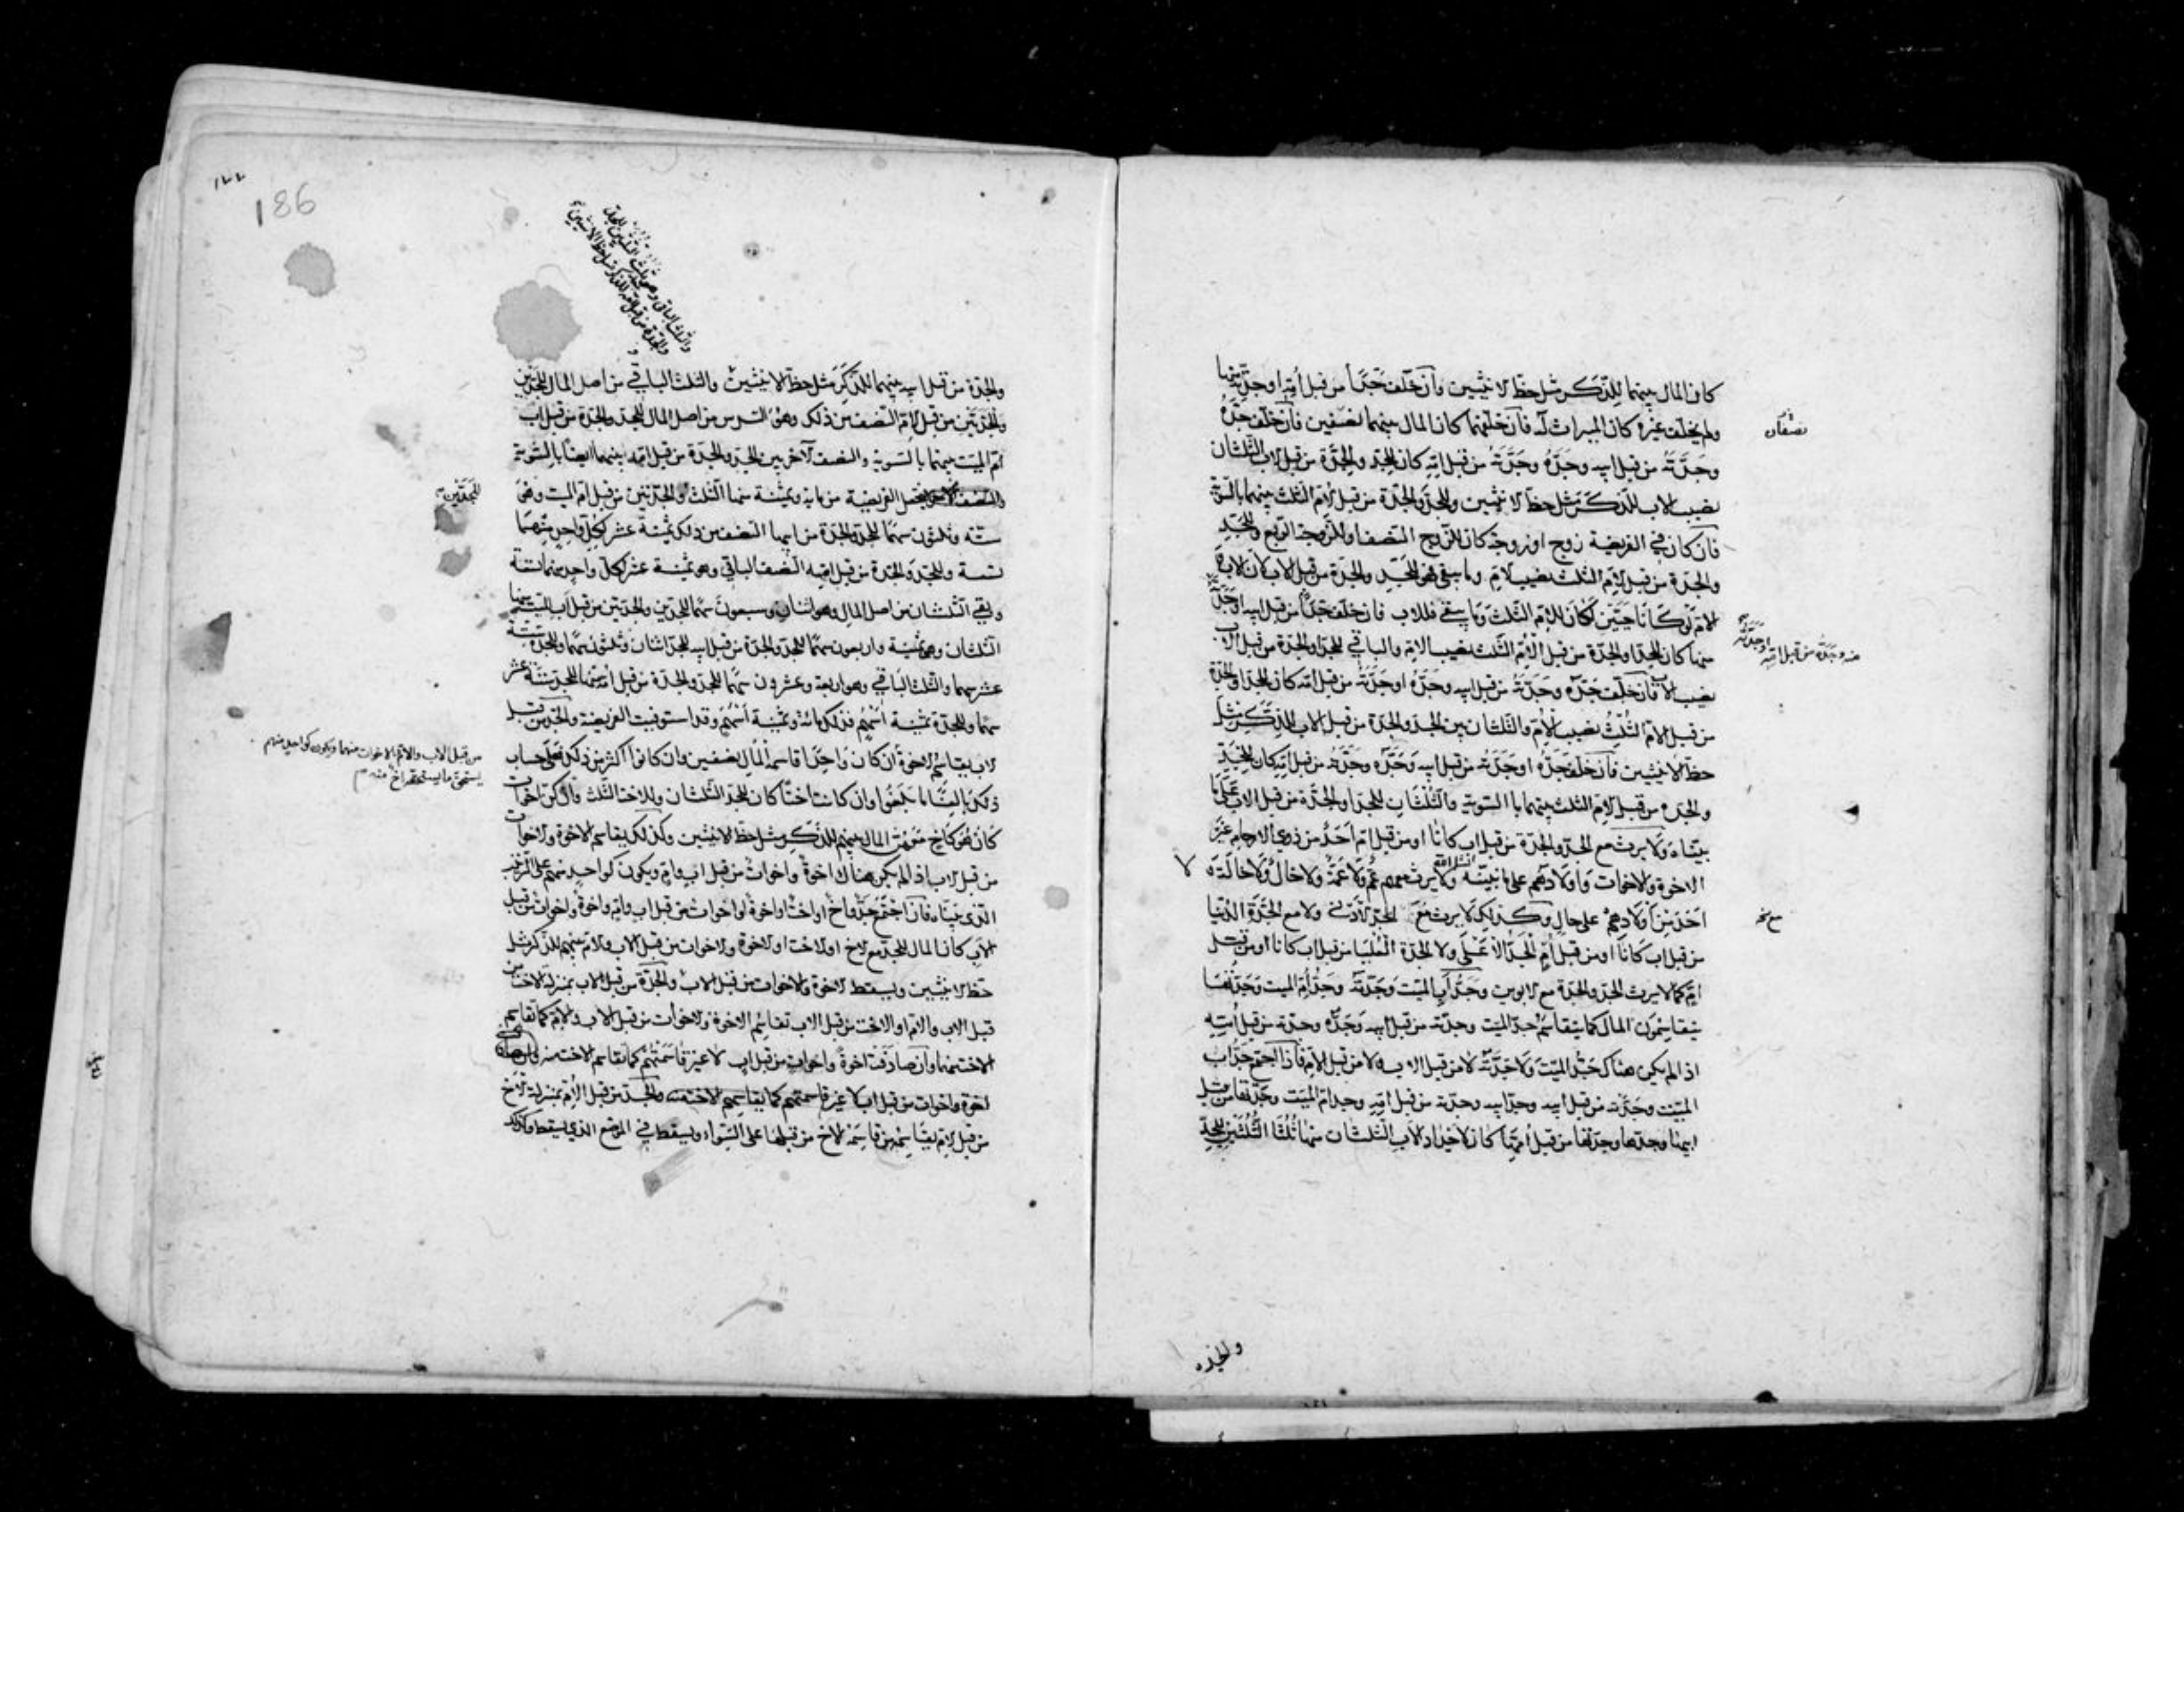 كان المال بينهما للذكر مثل حظ الانثيين وان خلف جدا من قبل امه او جدة منها
ولم يخلف غيره كان الميراث له فان خلفهما كان المال بينهما نصفين فان خلف جده
نصفان
وجدته من قبل ابيه وجده وجدته من قبل امه كان للجد والجدة من قبل الاب الثلثان
نصيب الاب للذكر مثل حظ الانثيين وللجد والجدة من قبل الام الثلث بينهما بالسوية
فان كان في الفريضة زوج او زوجة كان للزوج النصف او للزوجة الربع وللجد
والجدة من قبل الام الثلث نصيب الام وما بقي فهو للجد والجدة من قبل الاب لان الاب و
الام لو كانا حيين لكان للام الثلث وما بقي فللاب فان خلف جدا من قبل ابيه او جدة
منه وجده من قبل امه او جدته
منها كان للجد او الجدة من قبل الام الثلث نصيب الام والباقي للجد او الجدة من قبل الاب
نصيب الاب فان خلف جده وجدته من قبل ابيه وجده او جدته من قبل امه كان للجد او الجدة
من قبل الام الثلث نصيب الام والثلثان بين الجد والجدة من قبل الاب للذكر مثل
حظ الانثيين فان خلف جده او جدته من قبل ابيه وجده وجدته من قبل امه كان للجد
والجدة من قبل الام الثلث بينهما بالسوية والثلثان للجد او الجدة من قبل الاب على ما
بيناه ولا يرث مع الجد والجدة من قبل اب كانا او من قبل ام احد من ذوي الارحام غير
الاخوة والاخوات واولادهم على ما نبينه انشاء الله ولا يرث معهم عم ولا عمة ولا خال ولا خالة ولا
احد من اولادهم على حال وكذلك لا يرث مع الجد الادنى ولا مع الجدة الدنيا
مع نخه
من قبل اب كانا او من قبل ام الجد الاعلى ولا الجدة العليا من قبل اب كانا او من قبل
ام كما لا يرث الجد والجدة مع الابوين وجد اب الميت وجدته وجد ام الميت وجدتها
يتقاسمون المال كما يتقاسم جد الميت وجدته من قبل ابيه وجده وجدته من قبل امه
اذ الم يكن هناك جد الميت ولا جدته لا من قبل الاب ولا من قبل الام فاذا اجتمع جد اب
الميت وجدته من قبل ابيه وجد ابيه وجدته من قبل امه وجد ام الميت وجدتها من قبل
ابيها وجدها وجدتها من قبل امها كان لاجداد الاب الثلثان منها ثلثا الثلثين للجد
والجده
186
والثلث الباقي وهو ثلث الثلثين للجد
والجدة من قبل امه للذكر مثل حظ الانثيين
والجدة من قبل ابيه بينهما للذكر مثل حظ الانثيين والثلث الباقي من اصل المال للجدين
والجدتين من قبل الام النصف من ذلك وهو السدس من اصل المال للجد والجدة من قبل اب
ام الميت بينهما بالسوية والنصف الاخر بين الجد والجدة من قبل امه بينهما ايضا بالسوية
فتجعل الفريضة من مائة وثمنية منها الثلث والجدتين من قبل ام الميت وهو
للجدين
ستة وثلثون سهما للجد والجدة من ابيها النصف من ذلك ثمنية عشر لكل واحد منهما
تسعة وللجد والجدة من قبل امها النصف الباقي وهو ثمنية عشر لكل واحد منهما تسعة
وبقي الثلثان من اصل المال وهو اثنان وسبعون سهما للجدين والجدتين من قبل اب الميت منها
الثلثان وهو ثمنية واربعون سهما للجد والجدة من قبل ابيه للجد اثنان وثلثون سهما وللجدة ستة
عشر سهما والثلث الباقي وهو اربعة وعشرون سهما للجد والجدة من قبل امه منها للجد ستة عشر
سهما وللجدة ثمنية اسهم فذلك مائة وثمنية اسهم وقد استوفيت الفريضة والجد من قبل
الاب يقاسم الاخوة ان كان واحدا قاسم المال نصفين وان كانوا اكثر من ذلك فعلى حساب
من قبل الاب والام والاخوات منهما ويكون كواحد منهم
ذلك بالغا ما بلغوا وان كانت اختا كان للجد الثلثان وللاخت الثلث وان كن اخوات
كان هو كاخ معهن المال بينهم للذكر مثل حظ الانثيين وكذلك يقاسم الاخوة والاخوات
من قبل الاب اذ الم يكن هناك اخوة واخوات من قبل اب وام ويكون كواحد منهم على الترتيب
الذي بيناه فان اجتمع جد واخ او اخت او اخوة او اخوات من قبل اب وام واخوة واخوات من قبل
الاب كان المال للجد مع الاخ او الاخت او الاخوة والاخوات من قبل الاب والام بينهم للذكر مثل
حظ الانثيين ويسقط الاخوة والاخوات من قبل الاب والجدة من قبل الاب بمنزلة الاخت من
قبل الاب والام او الاخت من قبل الاب تقاسم الاخوة والاخوات من قبل الاب والام كما تقاسم
الاخت منهما وان صادفت اخوة واخوات من قبل اب لا غير قاسمتهم كما تقاسم الاخت منه
اخوة واخوات من قبل اب لا غير قاسمتهم كما تقاسمهم الاخت منه والجد من قبل الام بمنزلة الاخ
من قبل الام يقاسم من قاسمه الاخ من قبلها على السواء ويسقط في الموضع الذي يسقط وكذلك